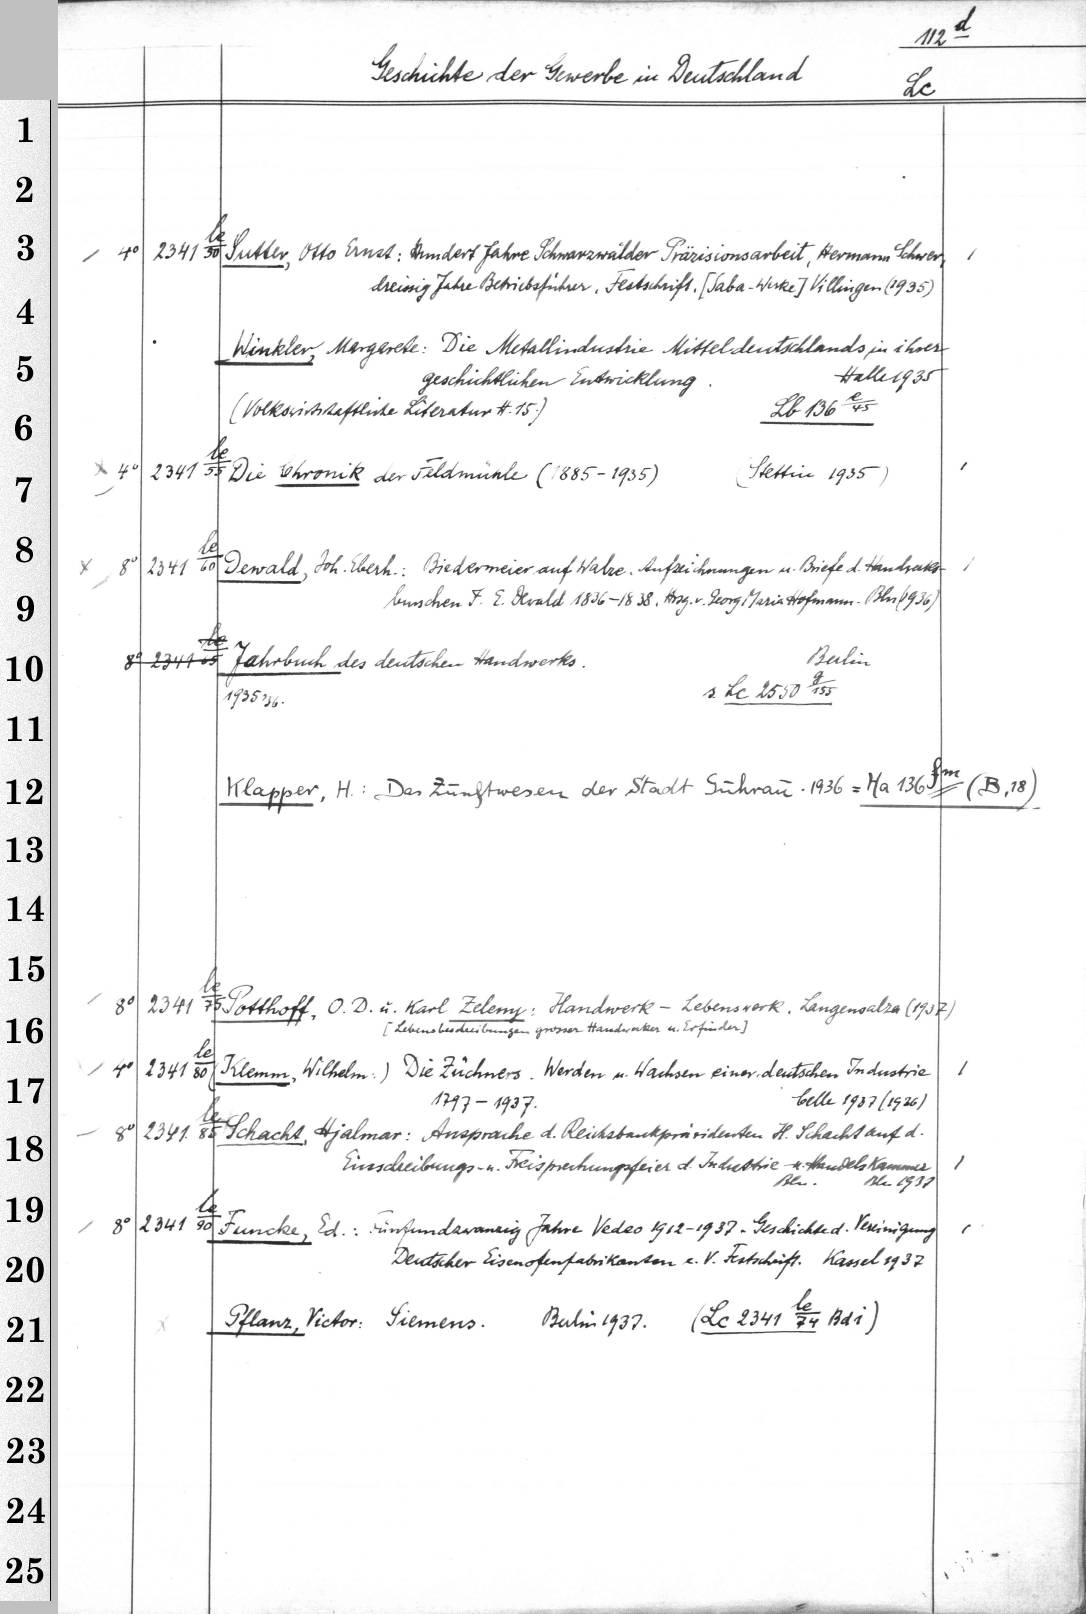 112 d
Geschichte der Gewerbe in Deutschland
Lc
1
2
3 4° 2341 le/50 Sutter, Otto Ernst: Hundert Jahre Schwarzwälder Präzisionsarbeit, Hermann Schwer,
dreissig Jahre Betriebsführer. Festschrift. [Saba-Werke] Villingen (1935)
4
Winkler, Margarete: Die Metallindustrie Mitteldeutschlands in ihrer
5 geschichtlichen Entwicklung. Halle 1935
6 (Volkswirtschaftliche Literatur H. 15.) Lb 136 e/45
7 4° 2341 le/55 Die Chronik der Feldmühle (1885-1935) (Stettin 1935)
8 8° 2341 le/60 Dewald, Joh. Eberh.: Biedermeier auf Walze. Aufzeichnungen u. Briefe d. Handwerks-
9 burschen J. E. Dewald 1836-1838. Hrsg. v. Georg Maria Hofmann. Bln (1936)
10 8° 2341 le/65 Jahrbuch des deutschen Handwerks. Berlin
1935/36. s. Lc 2550 g/155
11
12 Klapper, H.: Das Zunftwesen der Stadt Guhrau. 1936 = Ha 136 fm (B, 18)
13
14
15
16 8° 2341 le/75 Potthoff, O. D. u. Karl Zeleny: Handwerk - Lebenswerk. Langensalza (1937)
[Lebensbeschreibungen grosser Handwerker u. Erfinder]
17 4° 2341 le/80 (Klemm, Wilhelm:) Die Züchners. Werden u. Wachsen einer deutschen Industrie
1797-1937. Celle 1937 (1926)
18 8° 2341 le/85 Schacht, Hjalmar: Ansprache d. Reichsbankpräsidenten H. Schacht auf d.
Einschreibungs- u. Freisprechungsfeier d. Industrie- u. Handelskammer
Bln. Bln 1937
19 8° 2341 le/90 Funcke, Ed.: Fünfundzwanzig Jahre Vedeo 1912-1937. Geschichte d. Vereinigung
20 Deutscher Eisenofenfabrikanten e. V. Festschrift. Kassel 1937
21 Pflanz, Victor: Siemens. Berlin 1937. (Lc 2341 le/74 Bd 1)
22
23
24
25